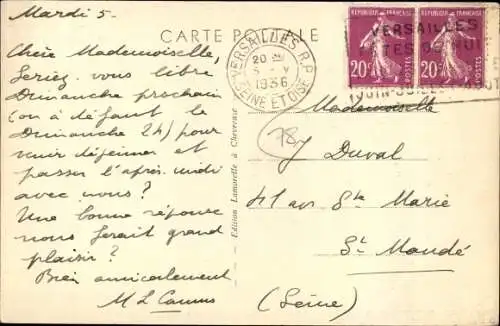 Mardi 5-
CARTE POSTALE
Chère Mademoiselle,
Seriez-vous libre
Dimanche prochain
(ou à défaut le
Dimanche 24) pour
venir déjeuner et
passer l'après-midi
avec nous?
Une bonne réponse
nous ferait grand
plaisir?
Bien amicalement
M L Camus
Edition Lamorette à Chevreuse
VERSAILLES R.P.
20
5 - V
1936
SEINE ET OISE
REPUBLIQUE FRANÇAISE
20c
POSTES
REPUBLIQUE FRANÇAISE
20c
POSTES
VERSAILLES
Mademoiselle
78
J Duval
41 av Ste Marie
St Mandé
(Seine)